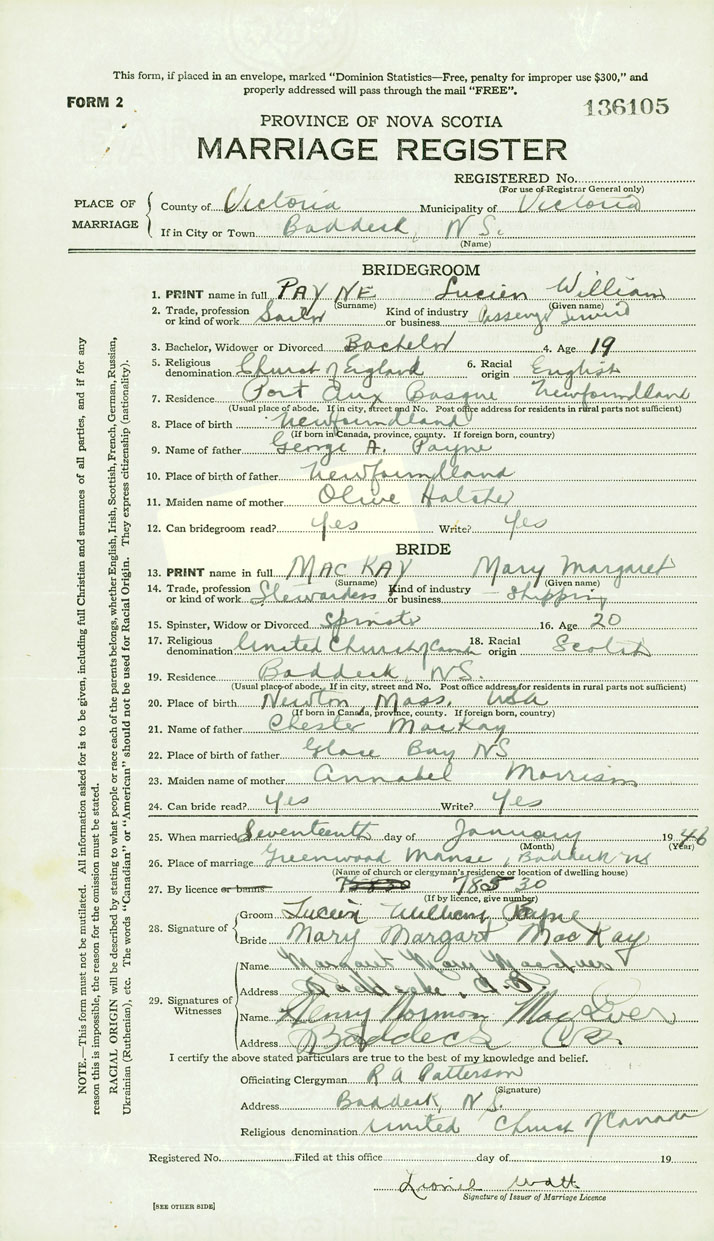 This form, if placed in an envelope, marked "Dominion Statistics—Free, penalty for improper use $300," and
properly addressed will pass through the mail "FREE".
FORM 2
136105
PROVINCE OF NOVA SCOTIA
MARRIAGE REGISTER
REGISTERED No.
(For use of Registrar General only)
PLACE OF MARRIAGE
County of Victoria Municipality of Victoria
If in City or Town Baddeck, N.S.
(Name)
BRIDEGROOM
1. PRINT name in full PAYNE Lucien William
(Surname) (Given name)
2. Trade, profession or kind of work Sailor Kind of industry or business Passenger
3. Bachelor, Widower or Divorced Bachelor 4. Age 19
5. Religious denomination Church of England 6. Racial origin English
7. Residence Port Aux Basque Newfoundland
(Usual place of abode. If in city, street and No. Post office address for residents in rural parts not sufficient)
8. Place of birth Newfoundland
(If born in Canada, province, county. If foreign born, country)
9. Name of father George A. Payne
10. Place of birth of father Newfoundland
11. Maiden name of mother Olive
12. Can bridegroom read? Yes Write? Yes
BRIDE
13. PRINT name in full MACKAY Mary Margaret
(Surname) (Given name)
14. Trade, profession or kind of work Stewardess Kind of industry or business Shipping
15. Spinster, Widow or Divorced Spinster 16. Age 20
17. Religious denomination United Church of Canada 18. Racial origin Scotch
19. Residence Baddeck, NS.
(Usual place of abode. If in city, street and No. Post office address for residents in rural parts not sufficient)
20. Place of birth Newton Mass. USA
(If born in Canada, province, county. If foreign born, country)
21. Name of father Chester MacKay
22. Place of birth of father Glace Bay NS
23. Maiden name of mother Annabel Morrison
24. Can bride read? Yes Write? Yes
25. When married Seventeenth day of January 1946
(Month) (Year)
26. Place of marriage Greenwood Manse, Baddeck NS
(Name of church or clergyman's residence or location of dwelling house)
27. By licence or banns 78530
(If by licence, give number)
28. Signature of
Groom Lucien William Payne
Bride Mary Margart MacKay
29. Signatures of Witnesses
Name Margaret Mary
Address Baddecke, C.B.
Name Henry Norman MacIver
Address Baddeck CB
I certify the above stated particulars are true to the best of my knowledge and belief.
Officiating Clergyman R A Patterson
(Signature)
Address Baddeck, N.S.
Religious denomination United Church of Canada
Registered No. Filed at this office day of 19
Lionel Watt
Signature of Issuer of Marriage Licence
[SEE OTHER SIDE]
NOTE.—This form must not be mutilated. All information asked for is to be given, including full Christian and surnames of all parties, and if for any
reason this is impossible, the reason for the omission must be stated.
RACIAL ORIGIN will be described by stating to what people or race each of the parents belongs, whether English, Irish, Scottish, French, German, Russian,
Ukrainian (Ruthenian), etc. The words "Canadian" or "American" should not be used for Racial Origin. They express citizenship (nationality).